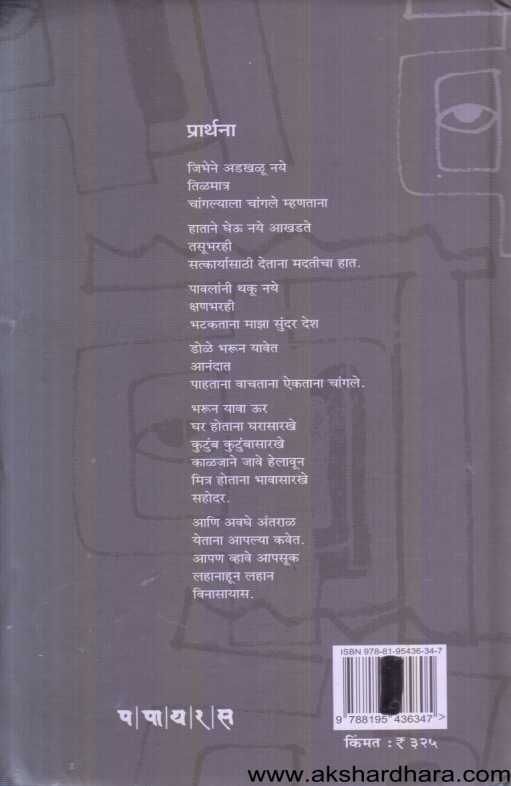 प्रार्थना
जिभेने अडखळू नये
तिळमात्र
चांगल्याला चांगले म्हणताना
हाताने घेऊ नये आखडते
तसूभरही
सत्कार्यासाठी देताना मदतीचा हात.
पावलांनी थकू नये
क्षणभरही
भटकताना माझा सुंदर देश
डोळे भरून यावेत
आनंदात
पाहताना वाचताना ऐकताना चांगले.
भरून यावा ऊर
घर होताना घरासारखे
कुटुंब कुटुंबासारखे
काळजाने जावे हेलावून
मित्र होताना भावासारखे
सहोदर.
आणि अवघे अंतराळ
येताना आपल्या कवेत.
आपण व्हावे आपसूक
लहानाहून लहान
विनासायास.
ISBN 978-81-95436-34-7
9 788195 436347 >
प|पा|य|र|स
किंमत : ₹ ३२५
www.akshardhara.com